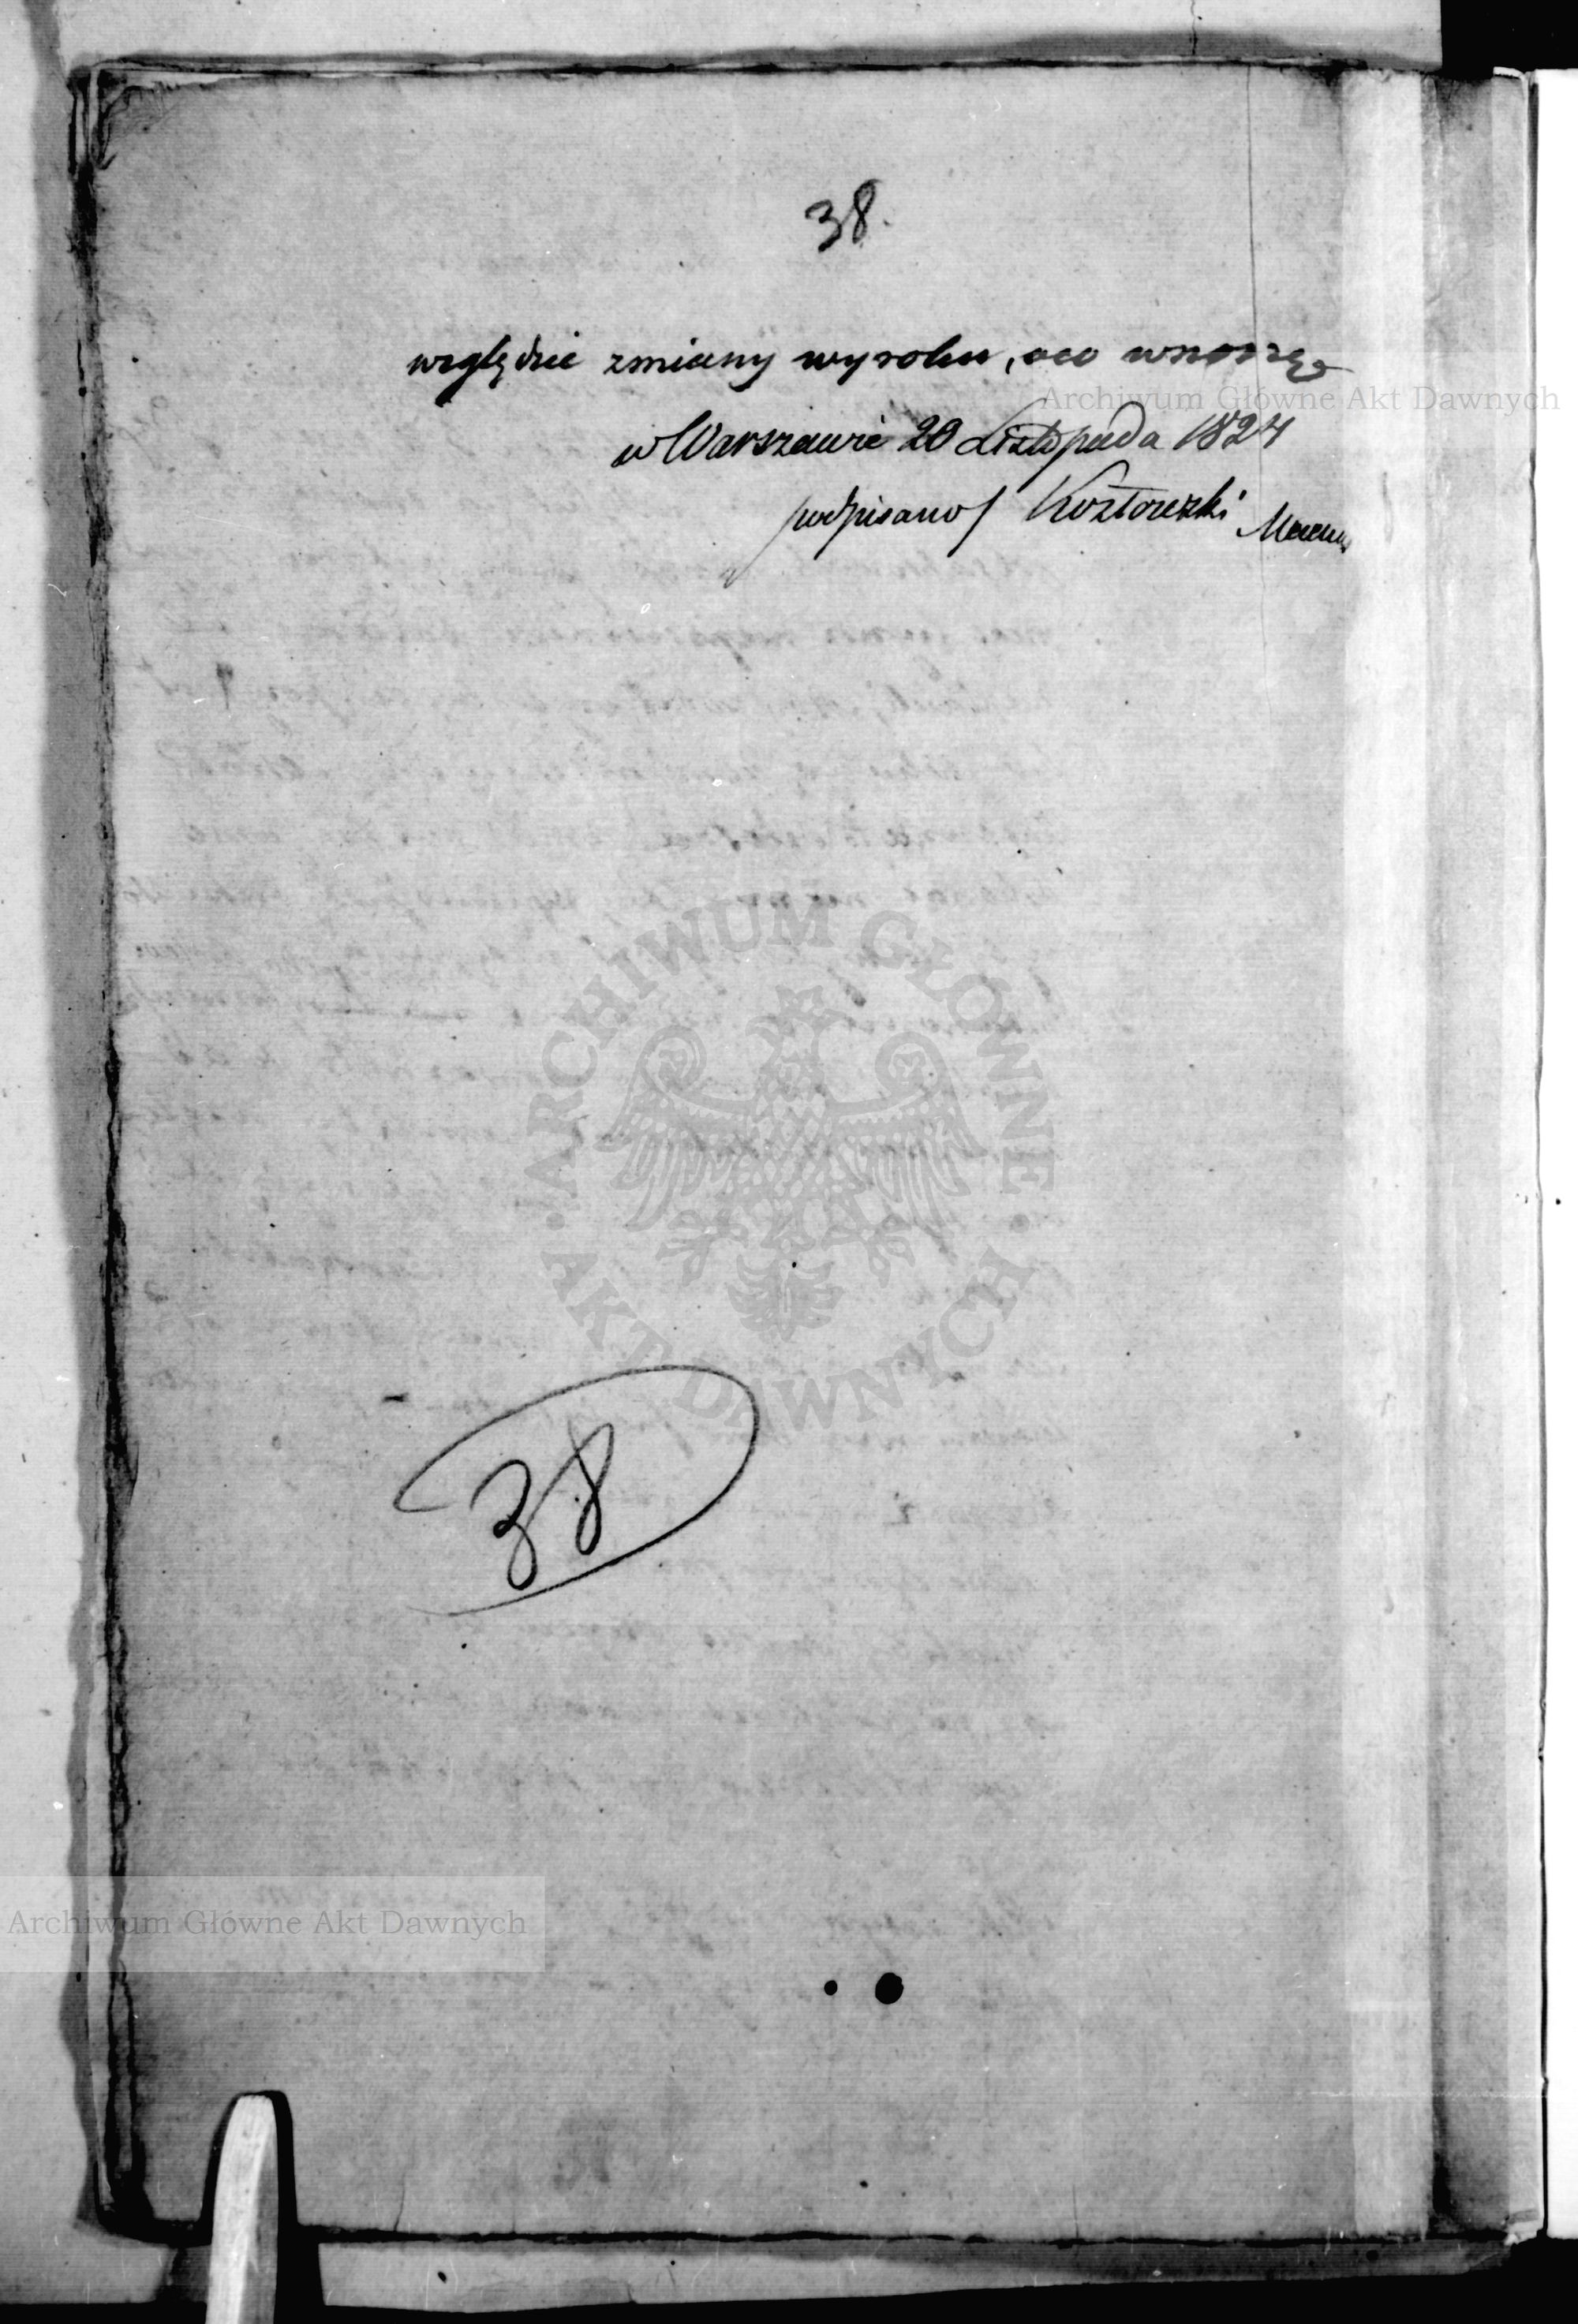 38.
względzie zmiany wyroku, oco wnoszę
Archiwum Główne Akt Dawnych
w Warszawie 20 Listopada 1824
podpisano/
ARCHIWUM GŁÓWNE
• AKT DAWNYCH •
38
Archiwum Główne Akt Dawnych